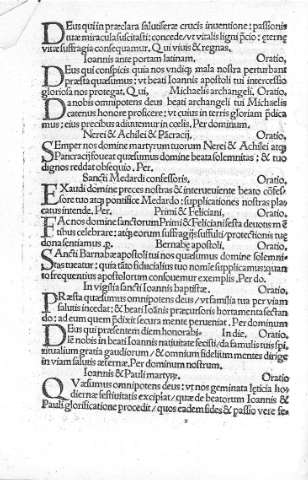 Deus qui in præclara salutiferæ crucis inuentione: passionis
tuæ miracula suscitasti: concede/vt vitalis ligni p̃cio: eternę
vitæ suffragia consequamur. Qui viuis & regnas.
Ioannis ante portam latinam, Oratio,
Deus qui conspicis quia nos vndiq; mala nostra perturbant
præsta quæsumus: vt beati Ioannis apostoli tui intercessio
gloriosa nos protegat. Qui, Michaelis archangeli, Oratio,
Da nobis omnipotens deus beati archangeli tui Michaelis
eatenus honore proficere: vt cuius in terris gloriam p̃dica
mus; eius precibus adiuuemur in cœlis. Per dominum.
Nerei & Achilei & Pãcracij, Oratio,
Semper nos domine martyrum tuorum Nerei & Achilei atq;
Pancracij foueat quæsumus domine beata solemnitas: & tuo
dignos reddat obsequio. Per.
Sancti Medardi confessoris, Oratio,
Exaudi domine preces nostras & interueniente beato cõfes-
sore tuo atq; pontifice Medardo: supplicationes nostras plac
catus intende, Per. Primi & Feliciani, Oratio,
Fac nos domine sanctorum Primi & Feliciani festa deuotis mẽ
tibus celebrare: atq; eorum suffragijs suffulti/protectionis tuę
dona sentiamus .p. Bernabę apostoli, Oratio,
Sancti Barnabæ apostoli tui nos quæsumus domine solemni-
tas tueatur: quia tãto fiducialius tuo nomie supplicamus quan
to frequentius apostolorum confouemur exemplis .Per do.
In vigilia sancti Ioannis baptistæ. Oratio,
Præsta quæsumus omnipotens deus/vt familia tua per viam
salutis incedat: & beati Ioãnis pręcursoris hortamenta sectan
do: ad eum quem p̃dixit secura mente perueniat. Per dominum
Deus qui præsentem diem honorabi- In die, Oratio,
lẽ nobis in beati Ioannis natiuitate fecisti: da famulis tuis spi,
ritualium gratia gaudiorum/& omnium fidelium mentes dirige
in viam salutis æternæ. Per dominum nostrum.
Ioannis & Pauli martyrꝝ. Oratio,
Quæsumus omnipotens deus: vt nos geminata lęticia ho
diernæ festiuitatis excipiat/quæ de beatorum Ioannis &
Pauli glorificatione procedit/quos eadem fides & passio vere fe-